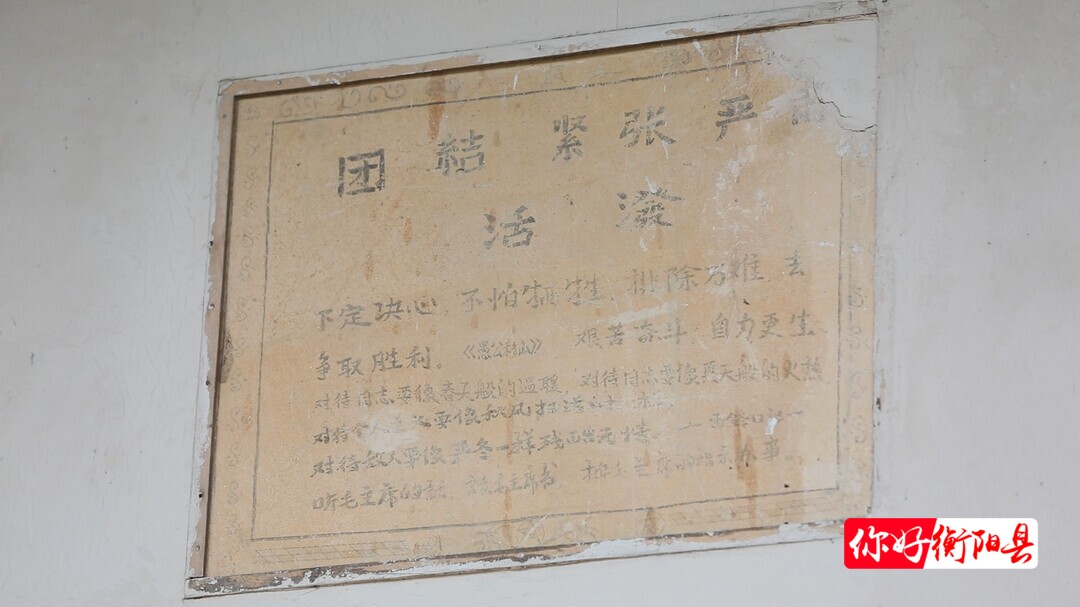 团结 紧张 严
活 潑
下定决心，不怕牺牲，排除万难 去
争取胜利。《愚公移山》 艰苦奋斗，自力更生
对待同志要像春天般的温暖，对待同志要像夏天般的火热
对待个人主义要像秋风扫落叶
对待敌人要像严冬一样残酷无情。
听毛主席的话，读毛主席书，指示办事。
你好衡阳县